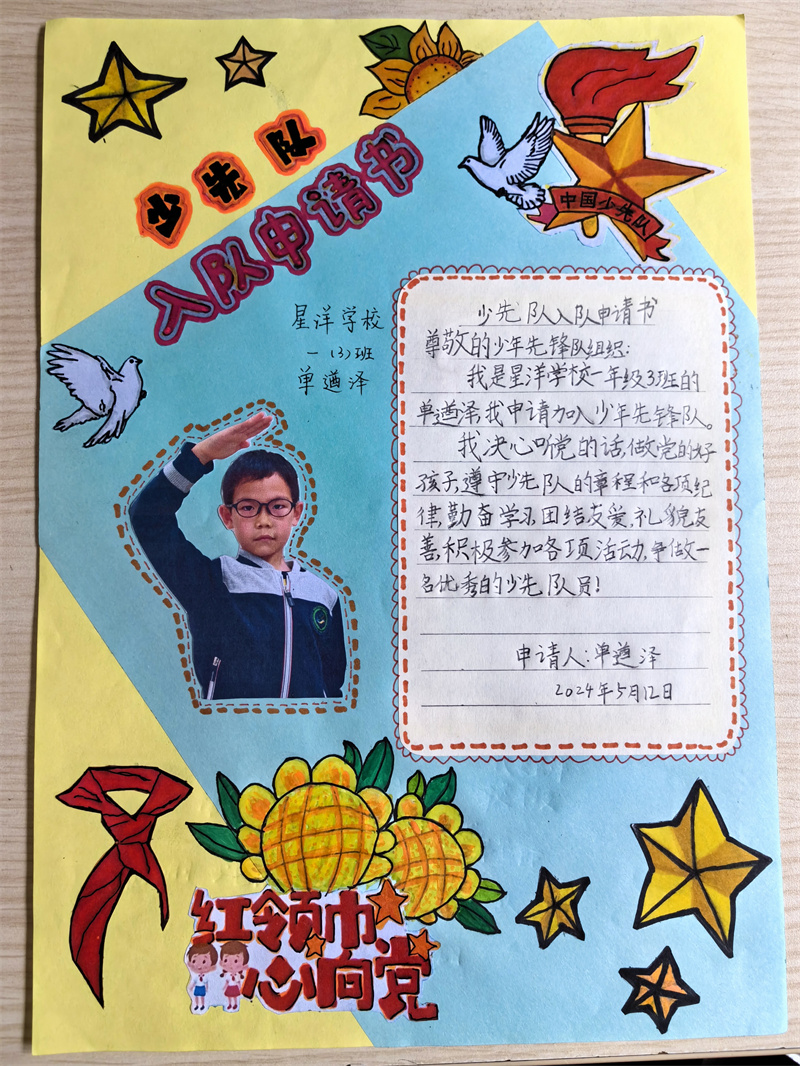 少先队
入队申请书
中国少先队
星洋学校
一(3)班
单遒泽
少先队入队申请书
尊敬的少年先锋队组织:
我是星洋学校一年级3班的
单遒泽,我申请加入少年先锋队。
我决心听党的话,做党的好
孩子,遵守少先队的章程和各项纪
律,勤奋学习,团结友爱,礼貌友
善,积极参加各项活动,争做一
名优秀的少先队员!
申请人:单遒泽
2024年5月12日
红领巾
心向党